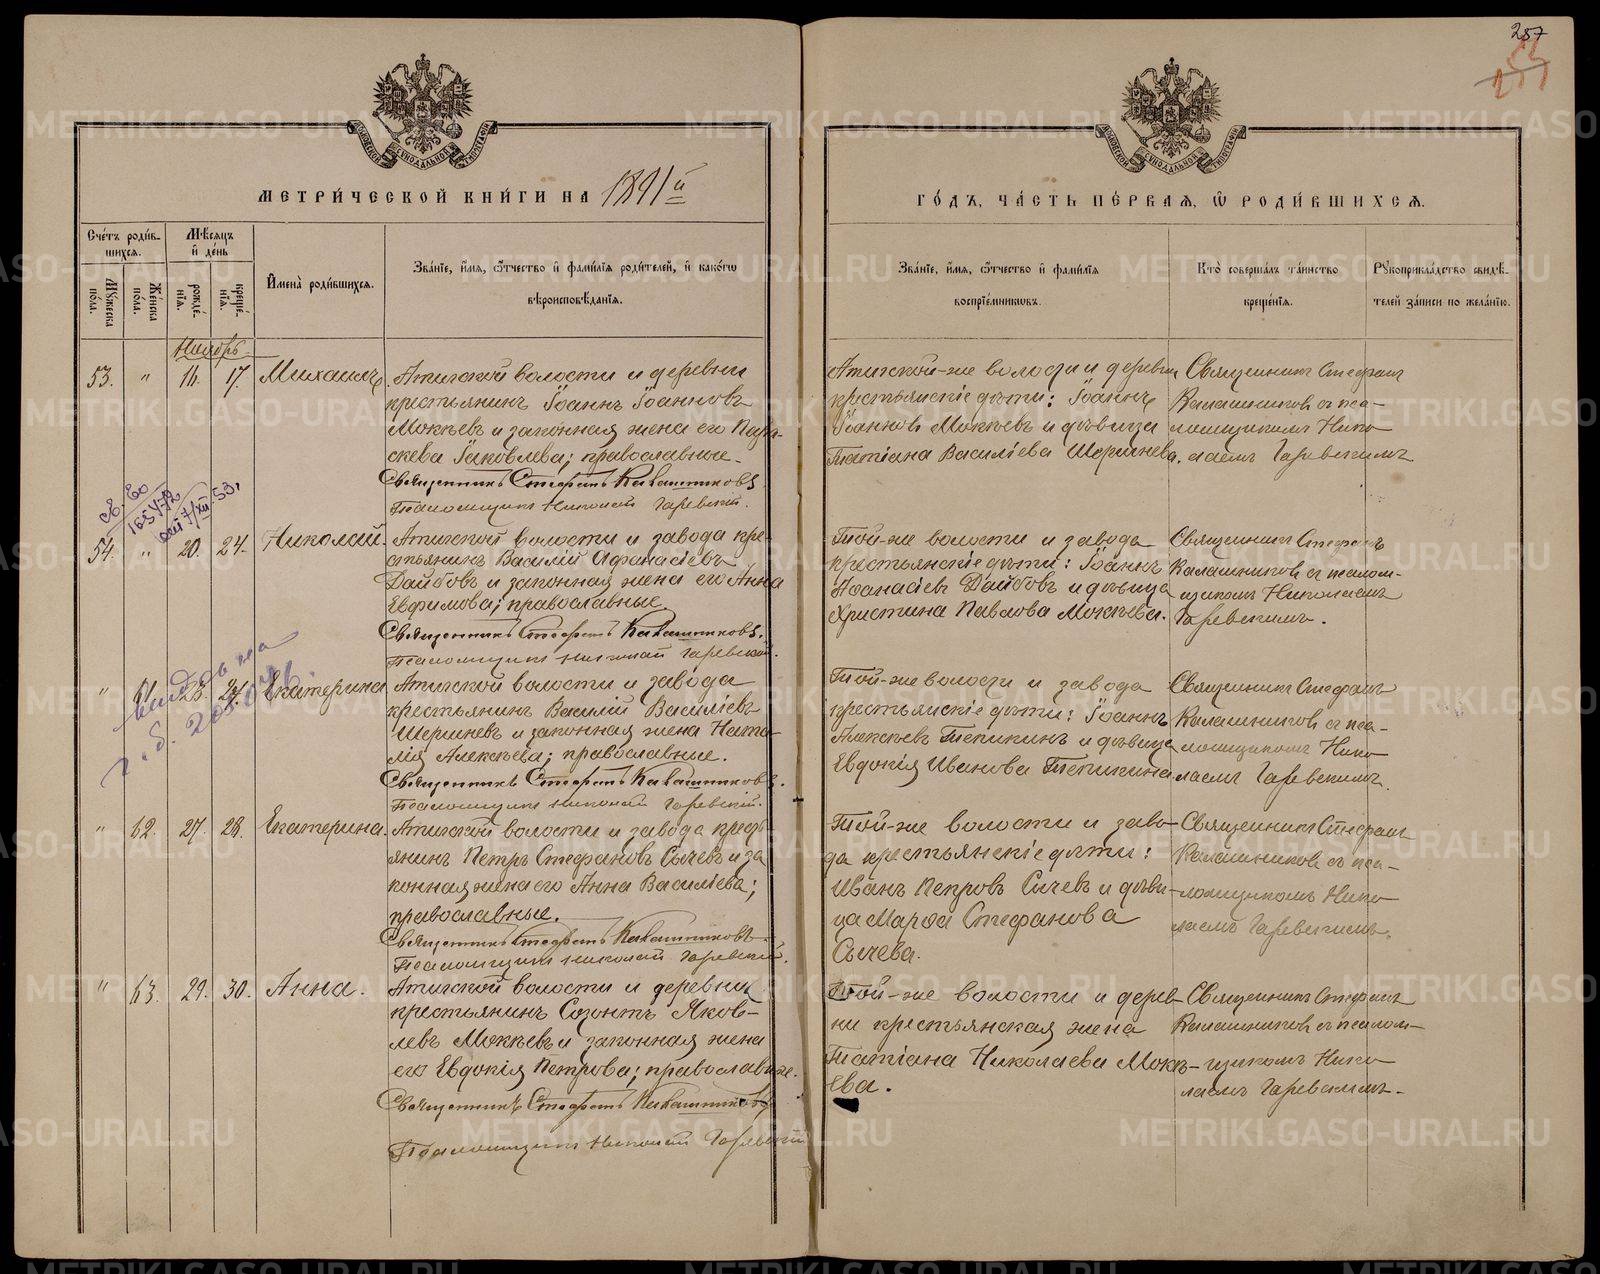 257
МЕТРИ́ЧЕСКОЙ КНИ́ГИ НА 1891й
ГО́ДЪ, ЧА́СТЬ ПЕ́РВАЯ, Ѿ РОДИ́ВШИХСЯ.
Сче́тъ роди́в-
шихся.
Мѣсяцъ
и҆ де́нь
Му́жеска
по́ла.
Же́нска
по́ла.
рожде́-
нїя.
креще́-
нїя.
И҆мена̀ роди́вшихся.
Зва́нїе, и҆́мя, ѻ҆́тчество и҆ фами́лїя роди́телей, и҆ како́гѡ
вѣроисповѣ́данїя.
Зва́нїе, и҆́мя, ѻ҆́тчество и҆ фами́лїя
воспрїе́мниковъ.
Кто̀ соверша́лъ та́инство
креще́нїя.
Рꙋкоприкла́дство свидѣ́-
телей за́писи по жела́нїю.
Ноябрь
53. " 16. 17. Михаилъ. Атигской волости и деревни
крестьянинъ Іоаннъ Іоанновъ
Мокѣевъ и законная жена его Пара-
скева Іаковлева; православные.
Священникъ Стефанъ Калашниковъ.
Псаломщикъ Николай Гаревскій.
Атигской-же волости и деревни
крестьянскіе дѣти: Іоаннъ
Іоанновъ Мокѣевъ и дѣвица
Татіана Василіева Шершнева.
Священникъ Стефанъ
Калашниковъ съ пса-
ломщикомъ Нико-
лаемъ Гаревскимъ
54. " 20. 24. Николай. Атигской волости и завода кре-
стьянинъ Василій Афанасіевъ
Дайбовъ и законная жена его Анна
Евфимова; православные.
Священникъ Стефанъ Калашниковъ.
Псаломщикъ Николай Гаревскій.
Той-же волости и завода
крестьянскіе дѣти: Іоаннъ
Аѳанасіевъ Дайбовъ и дѣвица
Христина Павлова Мокѣева.
Священникъ Стефанъ
Калашниковъ съ псалом-
щикомъ Николаемъ
Гаревскимъ.
" 61. 23. 24. Екатерина Атигской волости и завода
крестьянинъ Василій Василіевъ
Шершневъ и законная жена Ната-
лія Алексѣева; православные.
Священникъ Стефанъ Калашниковъ.
Псаломщикъ Николай Гаревскій.
Той-же волости и завода
крестьянскіе дѣти: Іоаннъ
Алексѣевъ Тепикинъ и дѣвица
Евдокія Иванова Тепикина
Священникъ Стефанъ
Калашниковъ съ пса-
ломщикомъ Нико-
лаемъ Гаревскимъ.
" 62. 27. 28. Екатерина. Атигской волости и завода кресть-
янинъ Петръ Стефановъ Сычевъ и за
конная жена его Анна Василіева;
православные.
Священникъ Стефанъ Калашниковъ
Псаломщикъ Николай Гаревскій.
Той-же волости и заво-
да крестьянскіе дѣти:
Иванъ Петровъ Сычевъ и дѣви-
ца Марѳа Стефанова
Сычева.
Священникъ Стефанъ
Калашниковъ съ пса-
ломщикомъ Нико-
лаемъ Гаревскимъ.
" 63. 29. 30. Анна. Атигской волости и деревни
крестьянинъ Созонтъ Яков-
левъ Мокѣевъ и законная жена
его Евдокія Петрова; православные.
Священникъ Стефанъ Калашниковъ
Псаломщикъ Николай Гаревскій
Той-же волости и дерев-
ни крестьянская жена
Татіана Николаева Мокѣ-
ева.
Священникъ Стефанъ
Калашниковъ съ псалом-
щикомъ Нико-
лаемъ Гаревскимъ.
METRIKI.GASO-URAL.RU